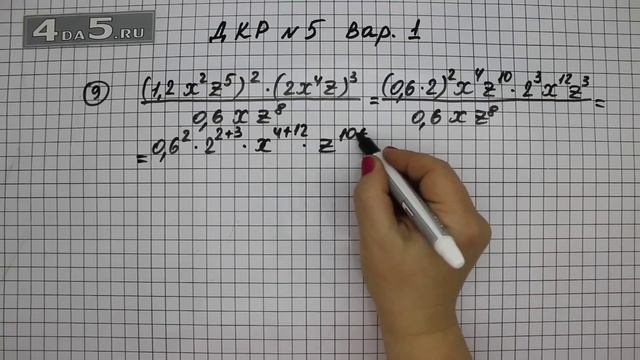 4DA5.RU
ДКР №5 Вар. 1
⑨ (1,2 x²z⁵)² · (2x⁴z)³ / 0,6 x z⁸ = (0,6·2)² x⁴ z¹⁰ · 2³ x¹² z³ / 0,6 x z⁸ =
= 0,6² · 2²⁺³ · x⁴⁺¹² · z¹⁰⁺